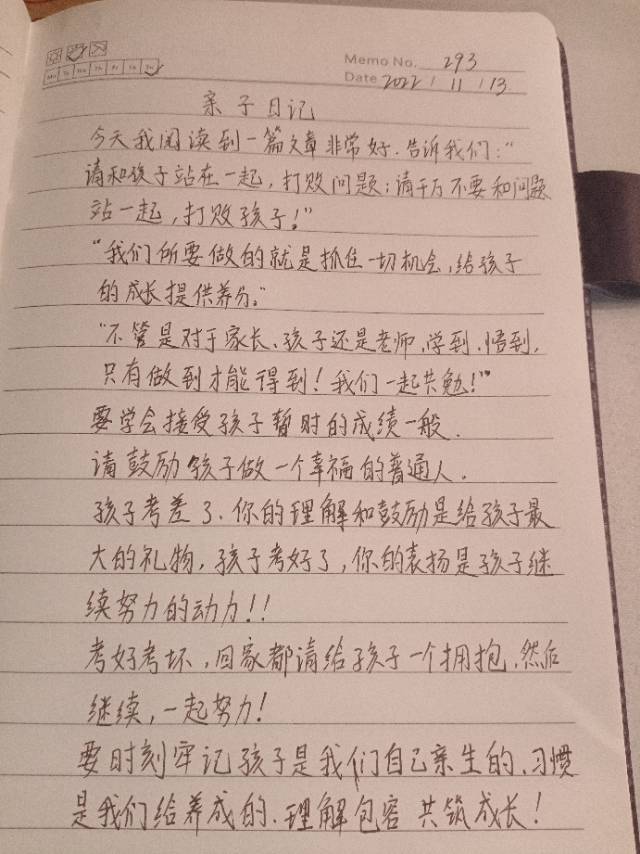 Memo No. 293
Mo Tu We Th Fr Sa Su
Date 2022 / 11 / 13
亲子日记
今天我阅读到一篇文章非常好.告诉我们:"
请和孩子站在一起,打败问题;请千万不要和问题
站一起,打败孩子!"
"我们所要做的就是抓住一切机会,给孩子
的成长提供养分。"
"不管是对于家长、孩子还是老师,学到.悟到,
只有做到才能得到!我们一起共勉!"
要学会接受孩子暂时的成绩一般.
请鼓励孩子做一个幸福的普通人.
孩子考差了.你的理解和鼓励是给孩子最
大的礼物,孩子考好了,你的表扬是孩子继
续努力的动力!!
考好考坏,回家都请给孩子一个拥抱.然后
继续,一起努力!
要时刻牢记孩子是我们自己亲生的.习惯
是我们给养成的.理解包容 共筑成长!